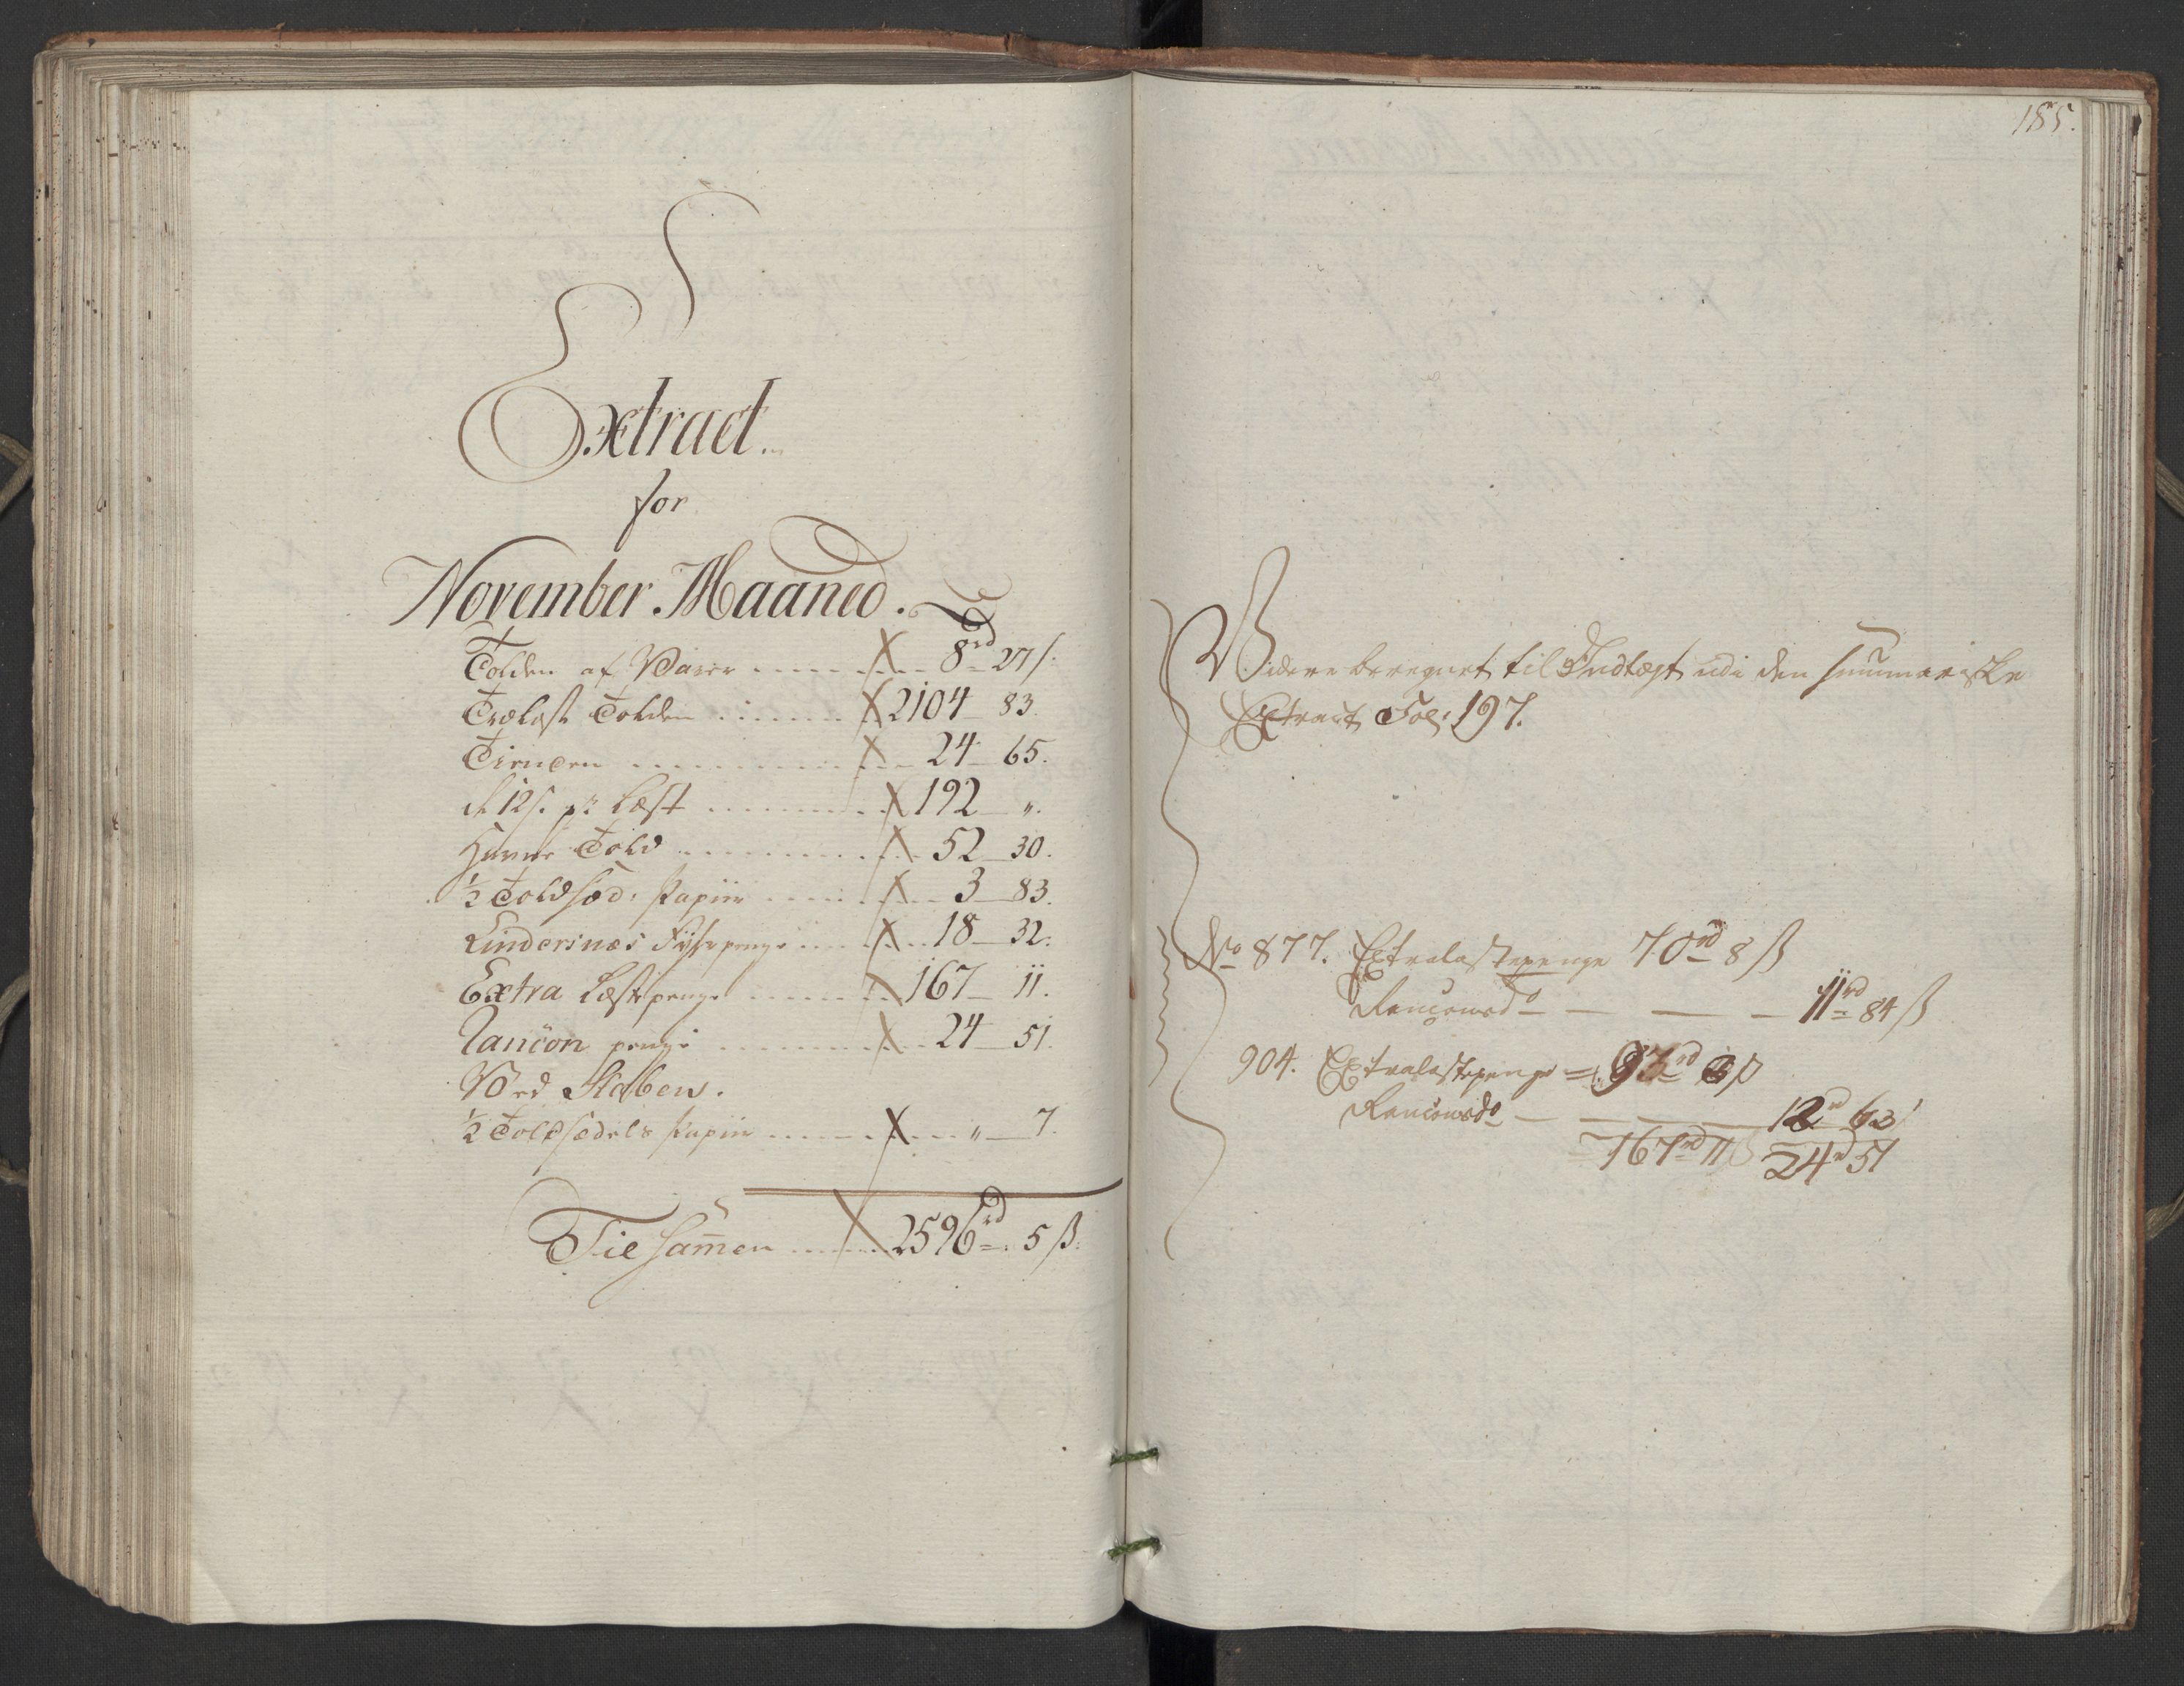 Extract
for
November Maaned.
Tolden af Varer 8rd 27ß:
Trælast Tolden 2104 83.
Tienden 24 65.
de 12ß. pr Læst 192 ".
Havne Told 52 30.
1/2 Toldsed: Papiir 3 83.
Lindersnæs Fyhrpenge 18 32:
Extra Læstepenge 167 11.
Rancon penge 24 51.
Ved Staben.
1/2 Toldsedels Papiir " 7.
Tilsam̅en 2596rd 5ß:
185.
Videre beregnet til Indtægt udi den summariske
Extract Fol: 197.
No 877. Extralastepenge 70rd 8ß
Ranconsdo 11rd 84ß
904. Extralastepenge 97rd 3ß
Ranconsdo 12rd 63ß
167rd 11ß 24rd 51